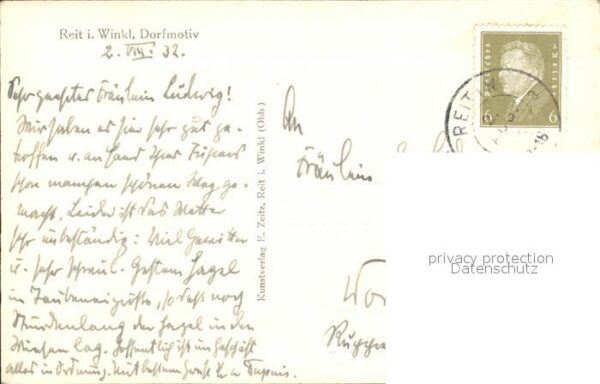 Reit i. Winkl, Dorfmotiv
2. VIII. 32.
Sehr geehrtes Fräulein Ludwig!
Wir haben es hier sehr gut ge-
troffen u. an Hand Ihres Führers
schon manchen schönen Weg ge-
macht. Leider ist das Wetter
sehr unbeständig: Viel Gewitter
u. sehr schwül. Gestern Hagel
in Taubeneigröße, so daß noch
Stundenlang der Hagel in den
Wiesen lag. Hoffentlich ist im Geschäft
alles in Ordnung. Mit bestem Gruß
Kunstverlag E. Zeitz, Reit i. Winkl (Obb)
An
Fräulein
Wo
Ruppe
6 6
REIT I. W
privacy protection
Datenschutz